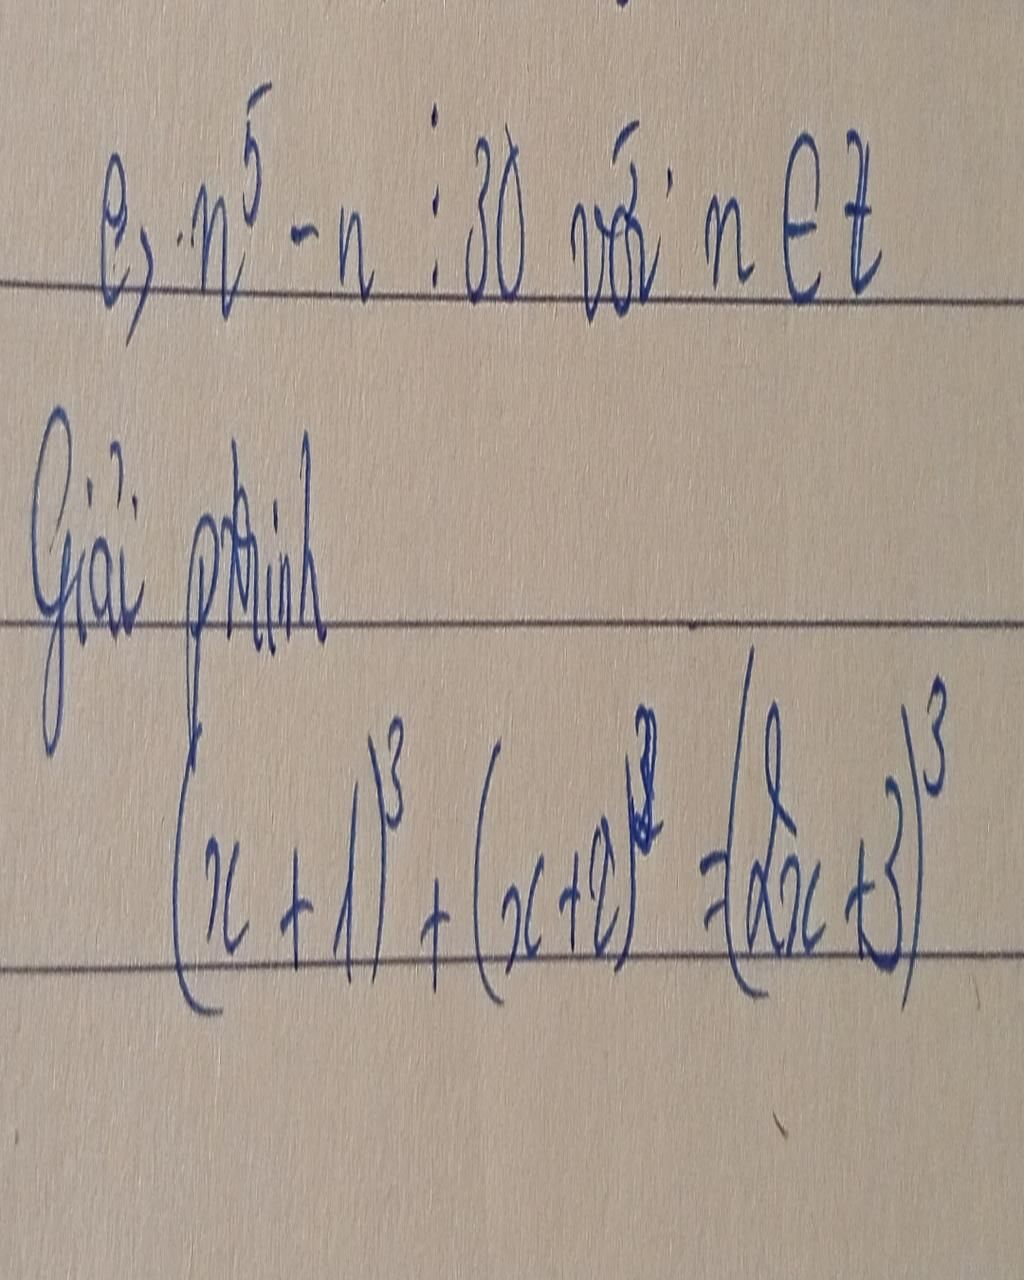 e, n⁵ - n ⋮ 30 với n ∈ Z
Giải ptrinh
(x + 1)³ + (x+2)³ = (2x + 3)³